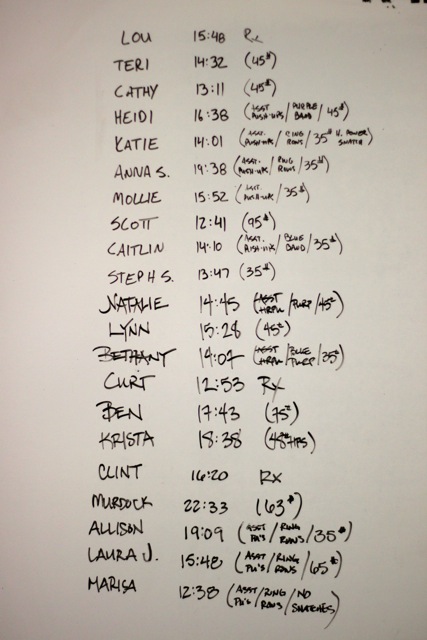 LOU 15:48 Rx
TERI 14:32 (45#)
CATHY 13:11 (45#)
HEIDI 16:38 (ASST PUSH-UPS/PURPLE BAND/45#)
KATIE 14:01 (ASST. PUSH-UPS/RING ROWS/35# H. POWER SNATCH)
ANNA S. 19:38 (ASST. PUSH-UPS/RING ROWS/35#)
MOLLIE 15:52 (ASST. PUSH-UPS/35#)
SCOTT 12:41 (95#)
CAITLIN 14:10 (ASST. PUSH-UPS/BLUE BAND/35#)
STEPH S. 13:47 (35#)
NATALIE 14:45 (ASST HRPU/PURP/45#)
LYNN 15:28 (45#)
BETHANY 14:07 (ASST HRPU/BLUE PURP/35#)
CURT 12:53 Rx
BEN 17:43 (75#)
KRISTA 18:38 (48# HPS)
CLINT 16:20 Rx
MURDOCK 22:33 (63#)
ALLISON 19:09 (ASST PU'S/RING ROWS/35#)
LAURA J. 15:48 (ASST PU'S/RING ROWS/65#)
MARISA 12:38 (ASST PU'S/RING ROWS/NO SNATCHES)